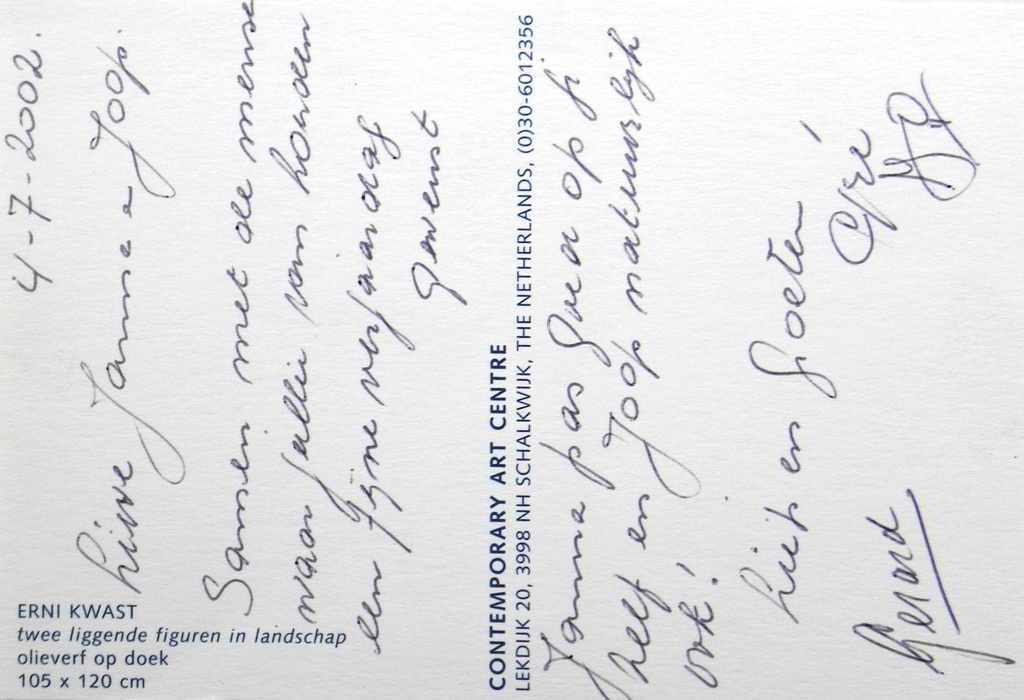 4-7-2002.
Lieve Janna e Joop.
Samen met de mense
waar jullie van houden
een fijne verjaardag
gewenst
ERNI KWAST
twee liggende figuren in landschap
olieverf op doek
105 x 120 cm
CONTEMPORARY ART CENTRE
LEKDIJK 20, 3998 NH SCHALKWIJK, THE NETHERLANDS, (0)30-6012356
Janna pas goed op je
zelf en Joop natuurlijk
ook!
Liefs en groeten
Gerard